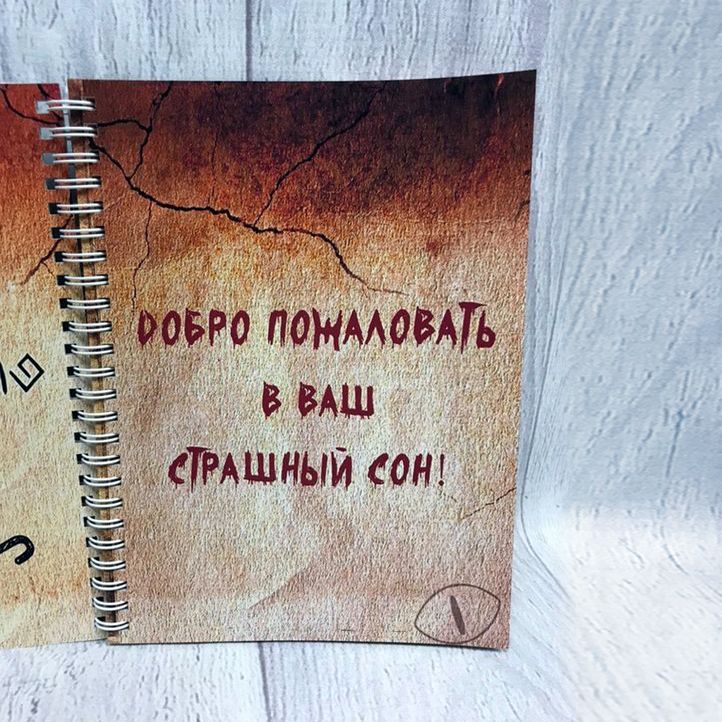 ДОБРО ПОЖАЛОВАТЬ
В ВАШ
СТРАШНЫЙ СОН!